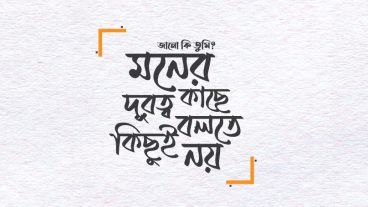 জানো কি তুমি?
মনের
দূরত্ব কাছে
কিছুই বলতে
নয়